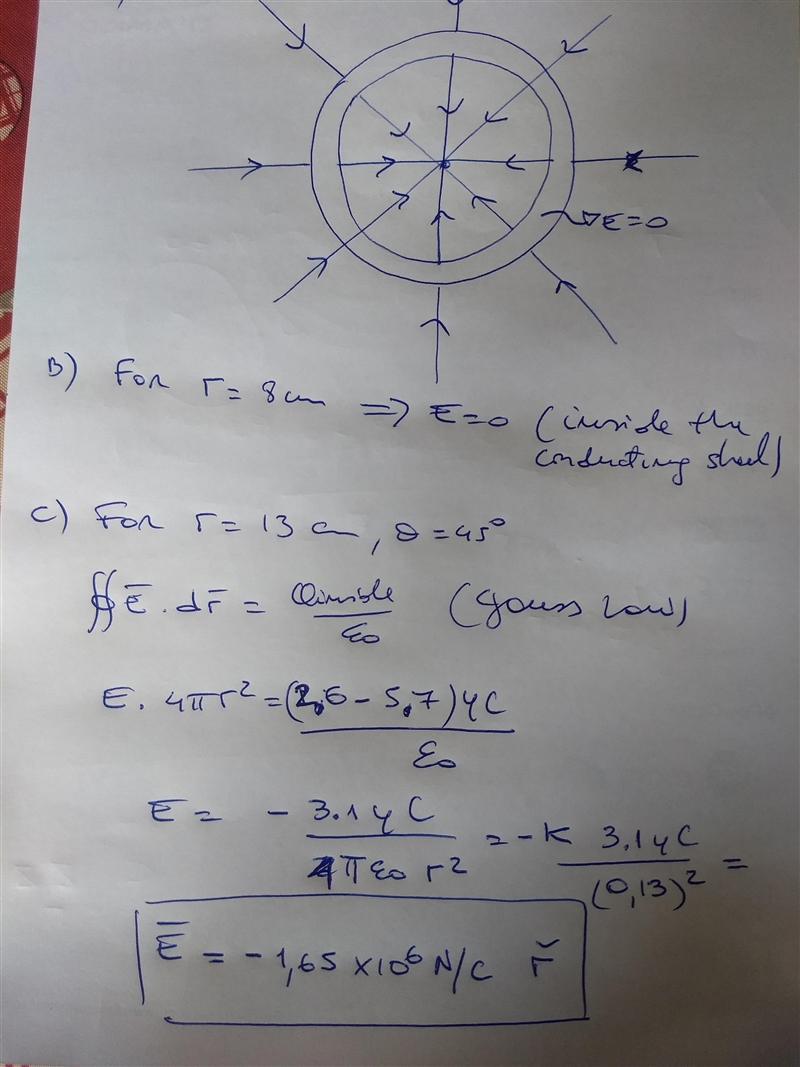 E=0
B) For r = 8 cm => E=0 (inside the
conducting shell)
C) For r = 13 cm, θ = 45°
∯ E̅ . dr̅ = Qinside / ε₀ (Gauss Law)
E. 4πr² = (2,6 - 5,7) μC / ε₀
E = - 3.1 μC / 4πε₀ r² = - K 3,1 μC / (0,13)² =
E̅ = - 1,65 x10⁶ N/C r̆